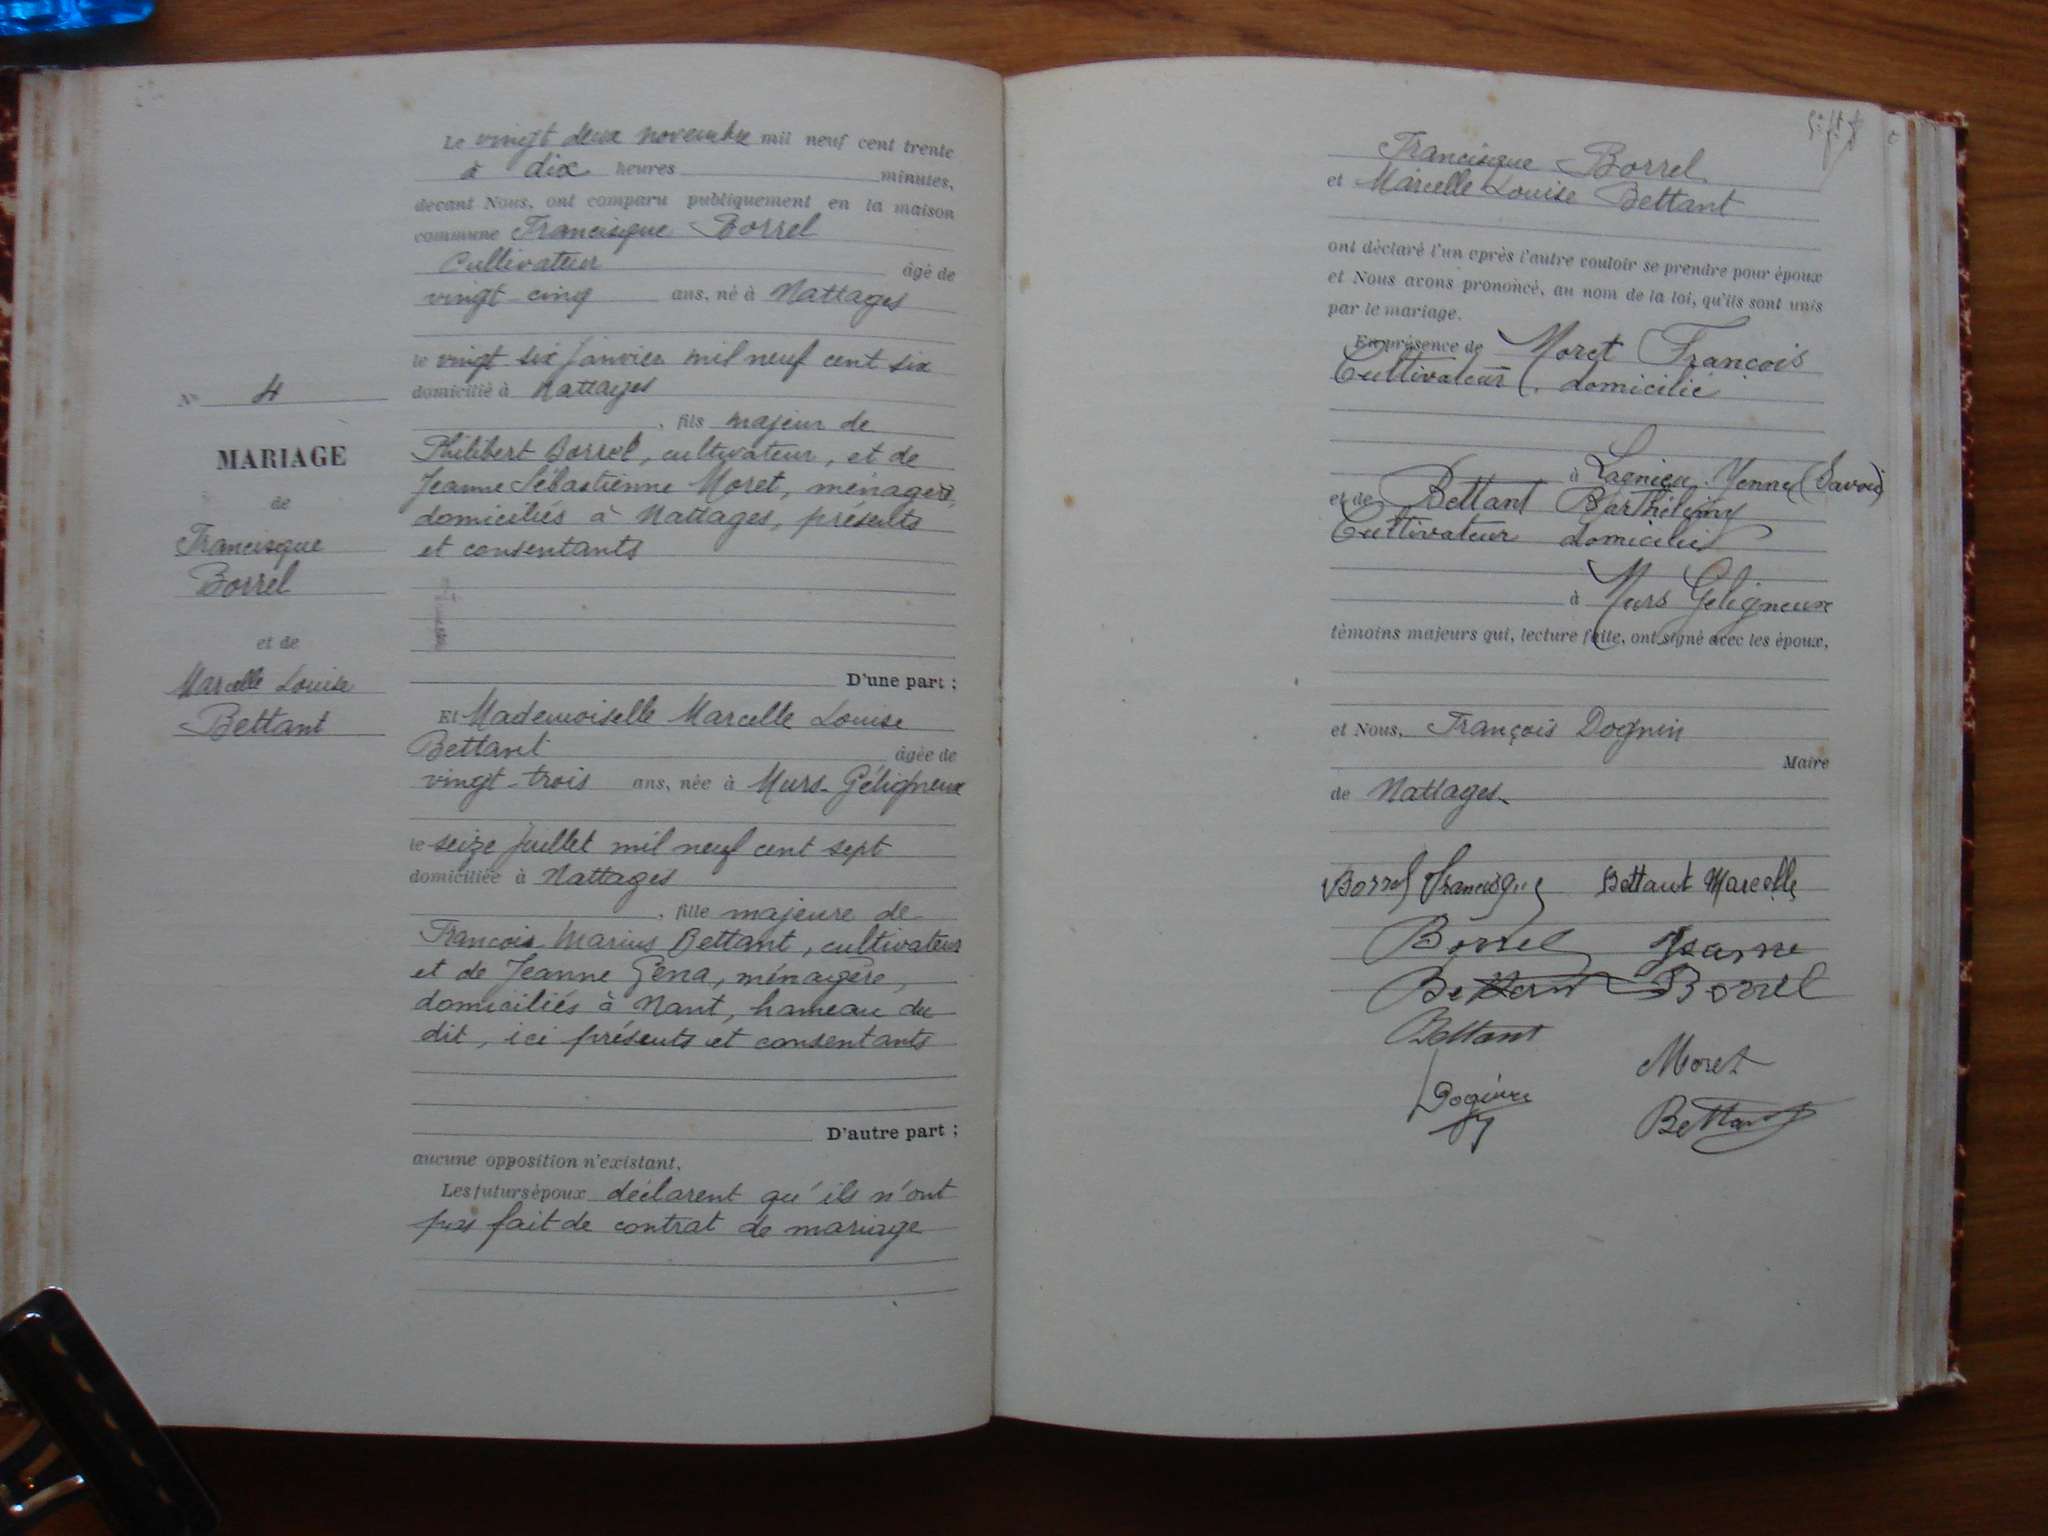 Le vingt deux novembre mil neuf cent trente
à dix heures minutes,
devant Nous, ont comparu publiquement en la maison
commune Francisque Borrel
Cultivateur âgé de
vingt-cinq ans, né à Nattages
le vingt six Janvier mil neuf cent six
domicilié à Nattages
, fils majeur de
Philibert Borrel, cultivateur, et de
Jeanne Sébastienne Moret, ménagère,
domiciliés à Nattages, présents
et consentants
D'une part ;
N° 4
MARIAGE
de
Francisque
Borrel
et de
Marcelle Louise
Bettant
Et Mademoiselle Marcelle Louise
Bettant âgée de
vingt-trois ans, née à Murs-Géligneux
le seize Juillet mil neuf cent sept
domiciliée à Nattages
, fille majeure de
François Marius Bettant, cultivateur
et de Jeanne Gena, ménagère,
domiciliés à Nant, hameau du
dit, ici présents et consentants
D'autre part ;
aucune opposition n'existant.
Les futurs époux déclarent qu'ils n'ont
pas fait de contrat de mariage
Francisque Borrel
et Marcelle Louise Bettant
ont déclaré l'un après l'autre vouloir se prendre pour époux
et Nous avons prononcé, au nom de la loi, qu'ils sont unis
par le mariage.
En présence de Moret François
Cultivateur, domicilié
à Lagnieu. Yenne (Savoie)
et de Bettant Barthélémy
Cultivateur domicilié
à Murs Géligneux
témoins majeurs qui, lecture faite, ont signé avec les époux,
et Nous, François Dognin
Maire
de Nattages.
Borrel Francisque Bettant Marcelle
Borrel Jeanne
Bettant Borrel
Bettant
Moret
Dognin
Bettant